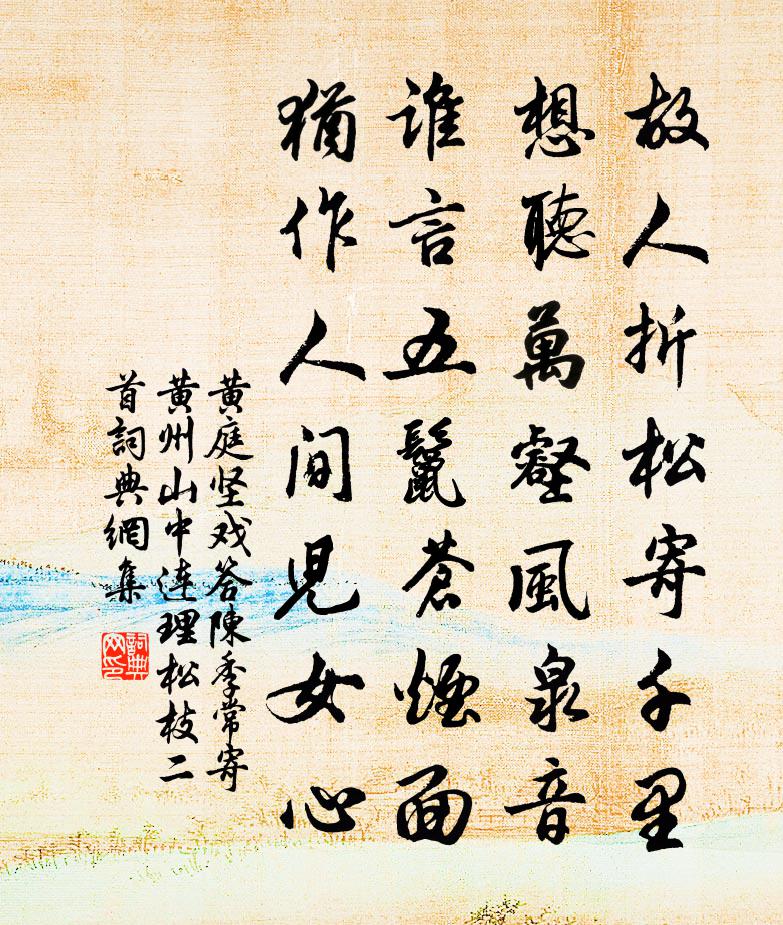 故人折松寄千里
想聽萬壑風泉音
誰言五鬣蒼煙面
猶作人間兒女心
黄庭坚戏答陳季常寄
黄州山中連理松枝二
首詞典網集
詞典
网印